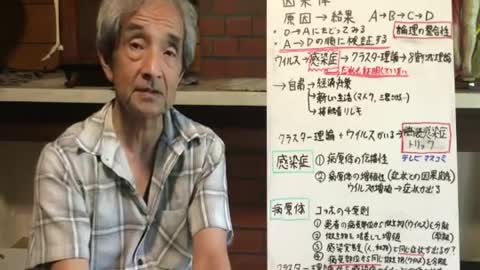 因果律
原因→結果 A→B→C→D
・D→Aにたどってみる
論理の整合性
・A→Dの順に検証する
ウイルス→感染症→クラスター理論→8割接触理論
→自粛→経済崩壊
→新しい生活(マスク、三密…)
→接触者リレキ
クラスター理論+ウイルスがいる→
感染症
トリック
テレビ マスコミ
感染症
①病原体の伝播性
②病原体の増殖性(症状との因果関係)
ウイルスが増殖→症状が出る
病原体
コッホの4原則
①患者の病気部位から微生物(ウイルス)を分離
②微生物を培養して増殖
③感染実験
同じ症状が出るか?
④病気部位から同じ微生物(ウイルス)を分離
クラスター理論